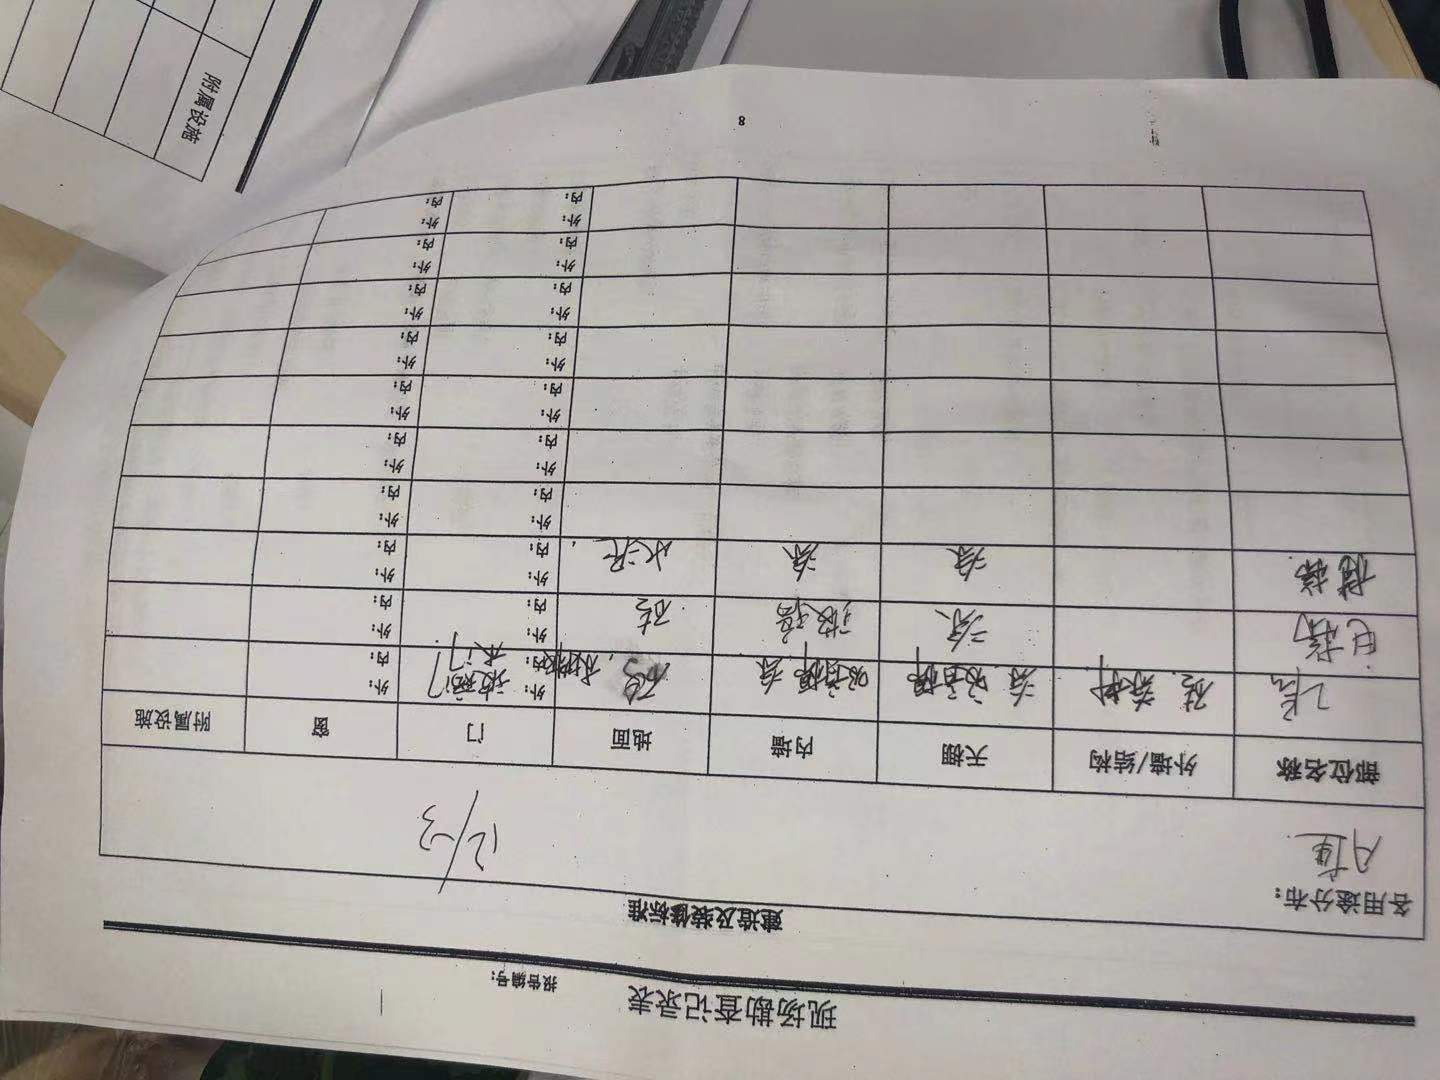 现场勘查记录表
报告编号：
建造及装修标准
各用途分布：
A座
12/-3
部位名称 外墙/结构 天棚 内墙 地面 门 窗 附属设施
大堂 砼. 涂料 涂 铝扣板 涂 瓷砖 玻璃门 外： 外：
木门 内： 内：
电梯 涂 玻璃 砼 外： 外：
内： 内：
楼梯 涂 涂 水泥 外： 外：
内： 内：
外： 外：
内： 内：
外： 外：
内： 内：
外： 外：
内： 内：
外： 外：
内： 内：
外： 外：
内： 内：
外： 外：
内： 内：
外： 外：
内： 内：
8
附属设施